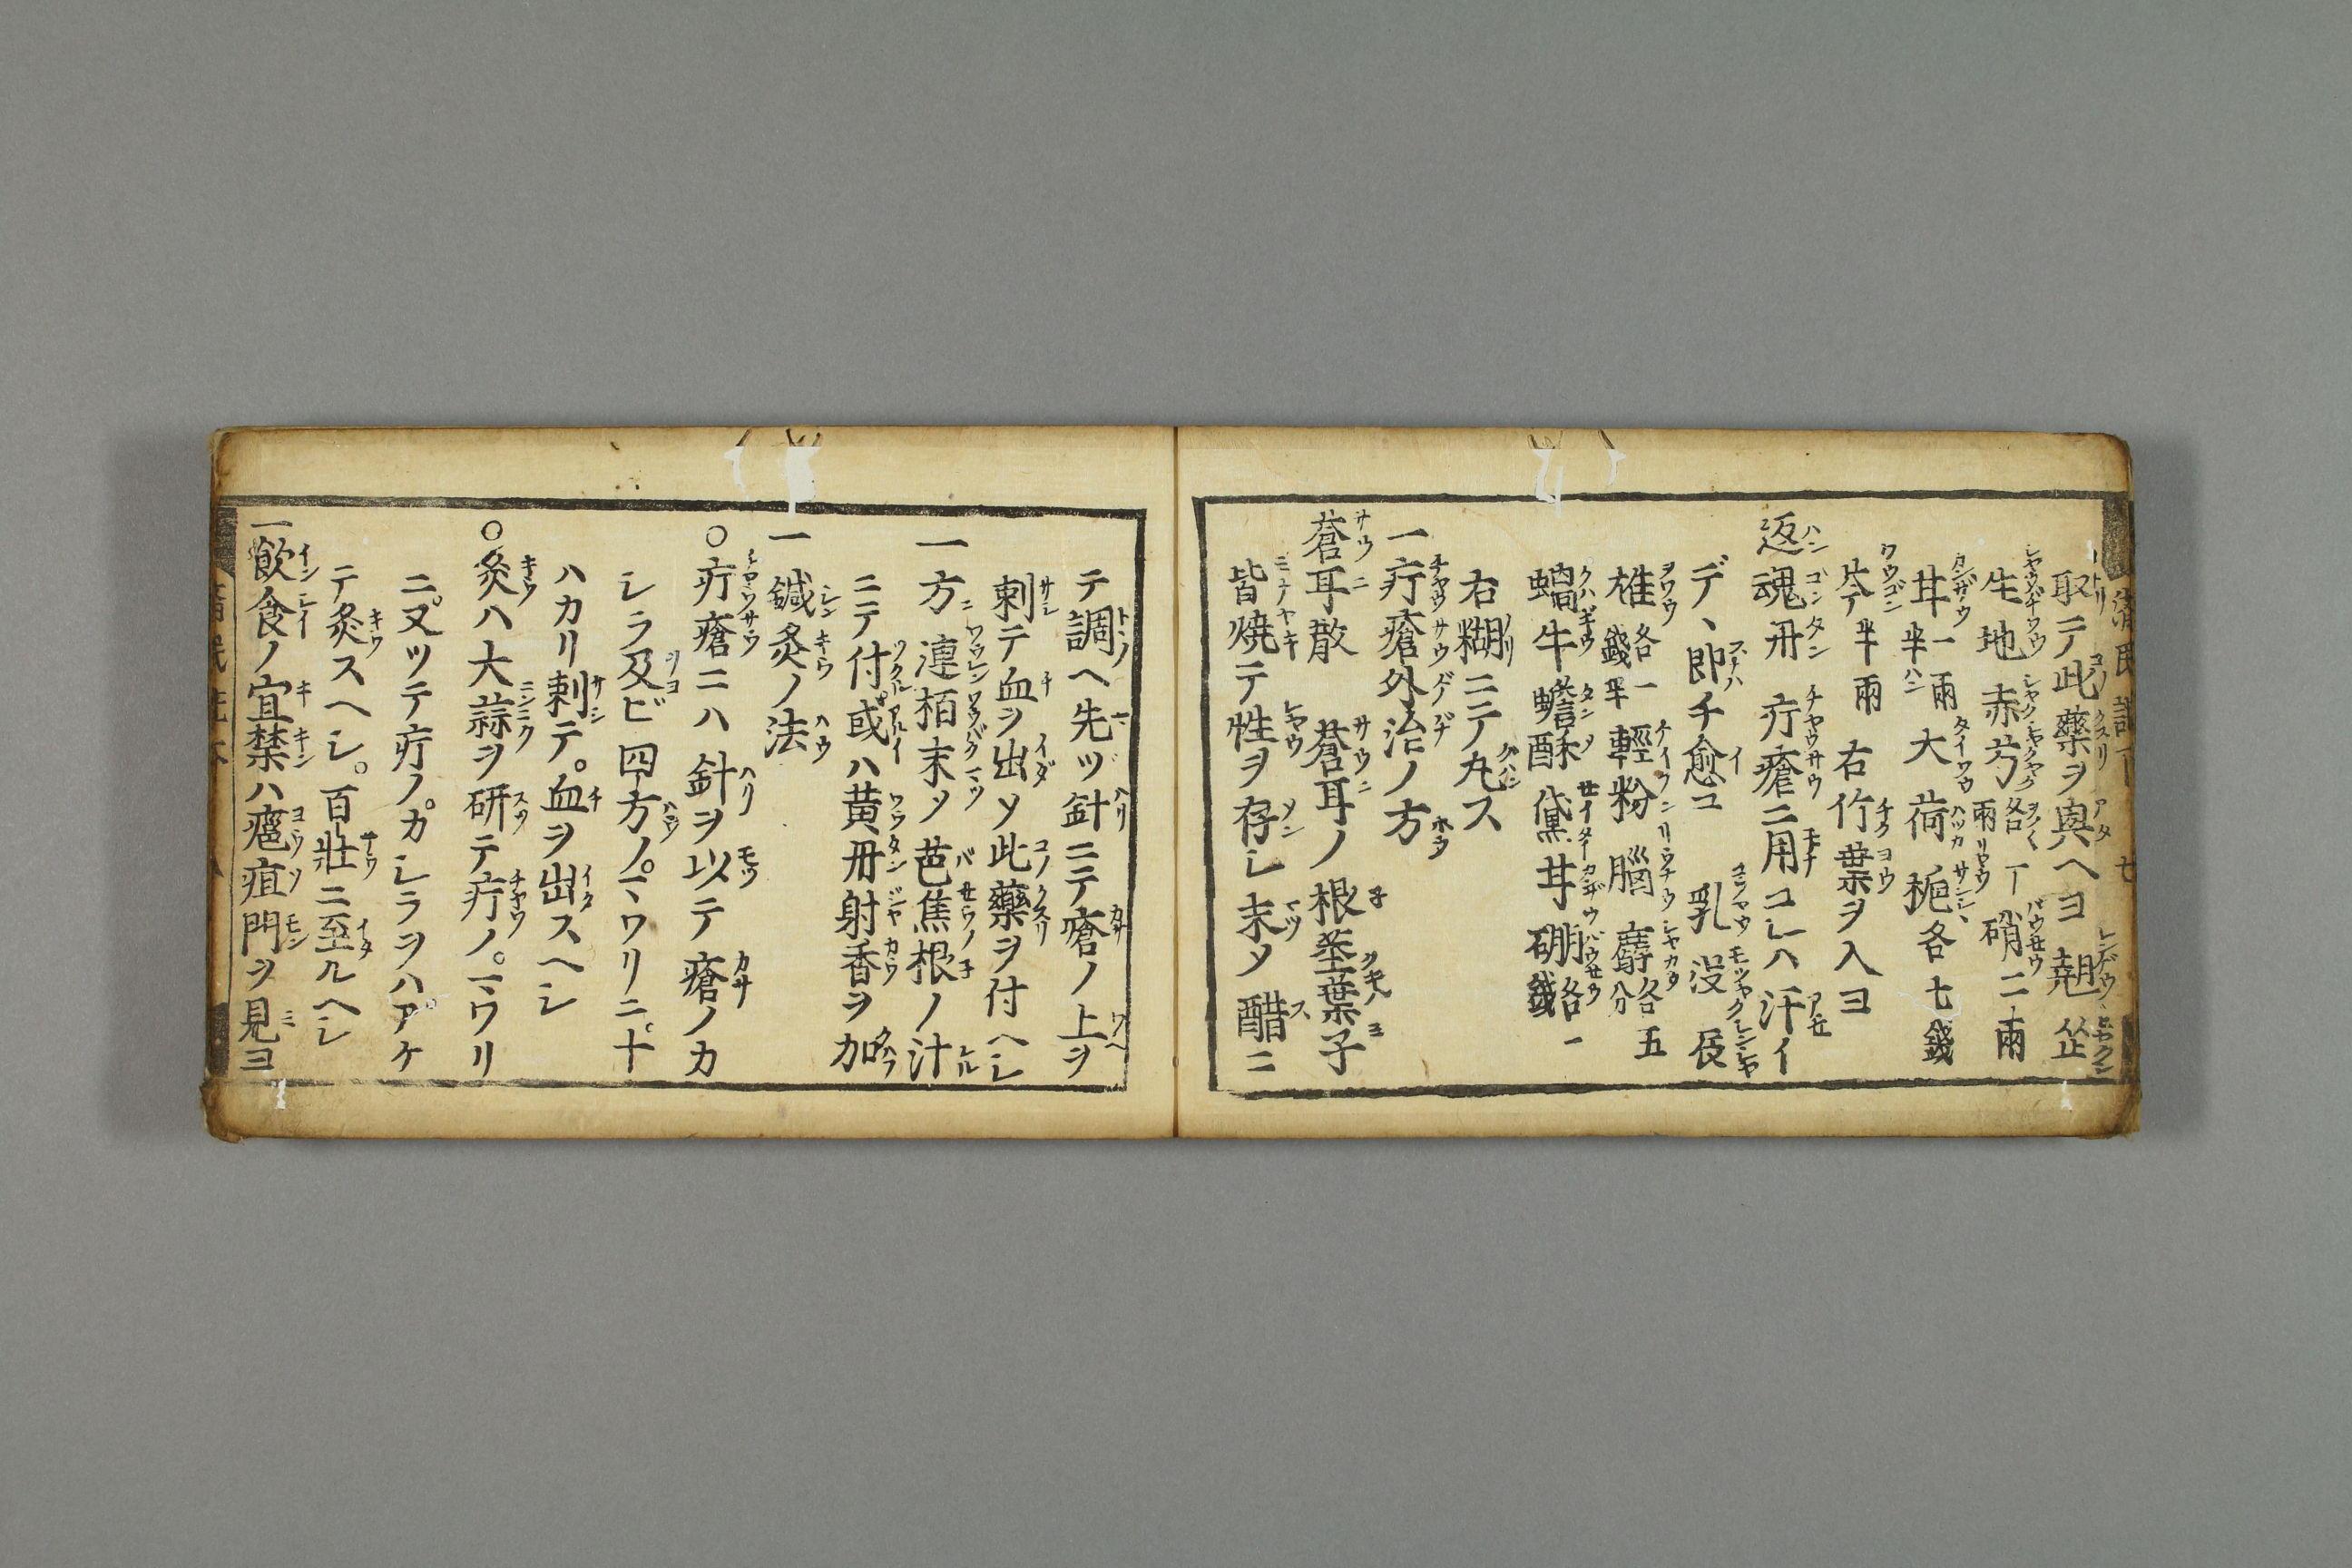 取ニテ此藥ヲ與ヘヨ 翹 芷
生地 赤芍各 丁 硝二兩
甘一兩半 大 荷 梔各七錢
芩半兩 右竹葉ヲ入ヨ
返魂丹 疔瘡ニ用コレハ汗イ
デヽ即チ愈コ 乳 没 辰
雄各一錢半 輕粉 腦 麝各五分
蝸牛 蟾酥 黛 甘 硼各一錢
右糊ニテ丸ス
一疔瘡外治ノ方
蒼耳散 蒼耳ノ根莖葉子
皆燒テ性ヲ存レ末メ醋ニ
テ調ヘ先ツ針ニテ瘡ノ上ヲ
刺テ血ヲ出ソ此藥ヲ付ヘレ
一方 連栢末メ芭蕉根ノ汁
ニテ付或ハ黄丹射香ヲ加
一鍼灸ノ法
○疔瘡ニハ針ヲ以テ瘡ノカ
レラ及ビ四方ノマワリニ十
ハカリ刺テ血ヲ出スヘレ
○灸ハ大蒜ヲ研テ疔ノマワリ
ニヌツテ疔ノカレラヲハアケ
テ灸スヘレ百壯ニ至ルヘレ
一飲食ノ宜禁ハ癰疽門ヲ見ヨ